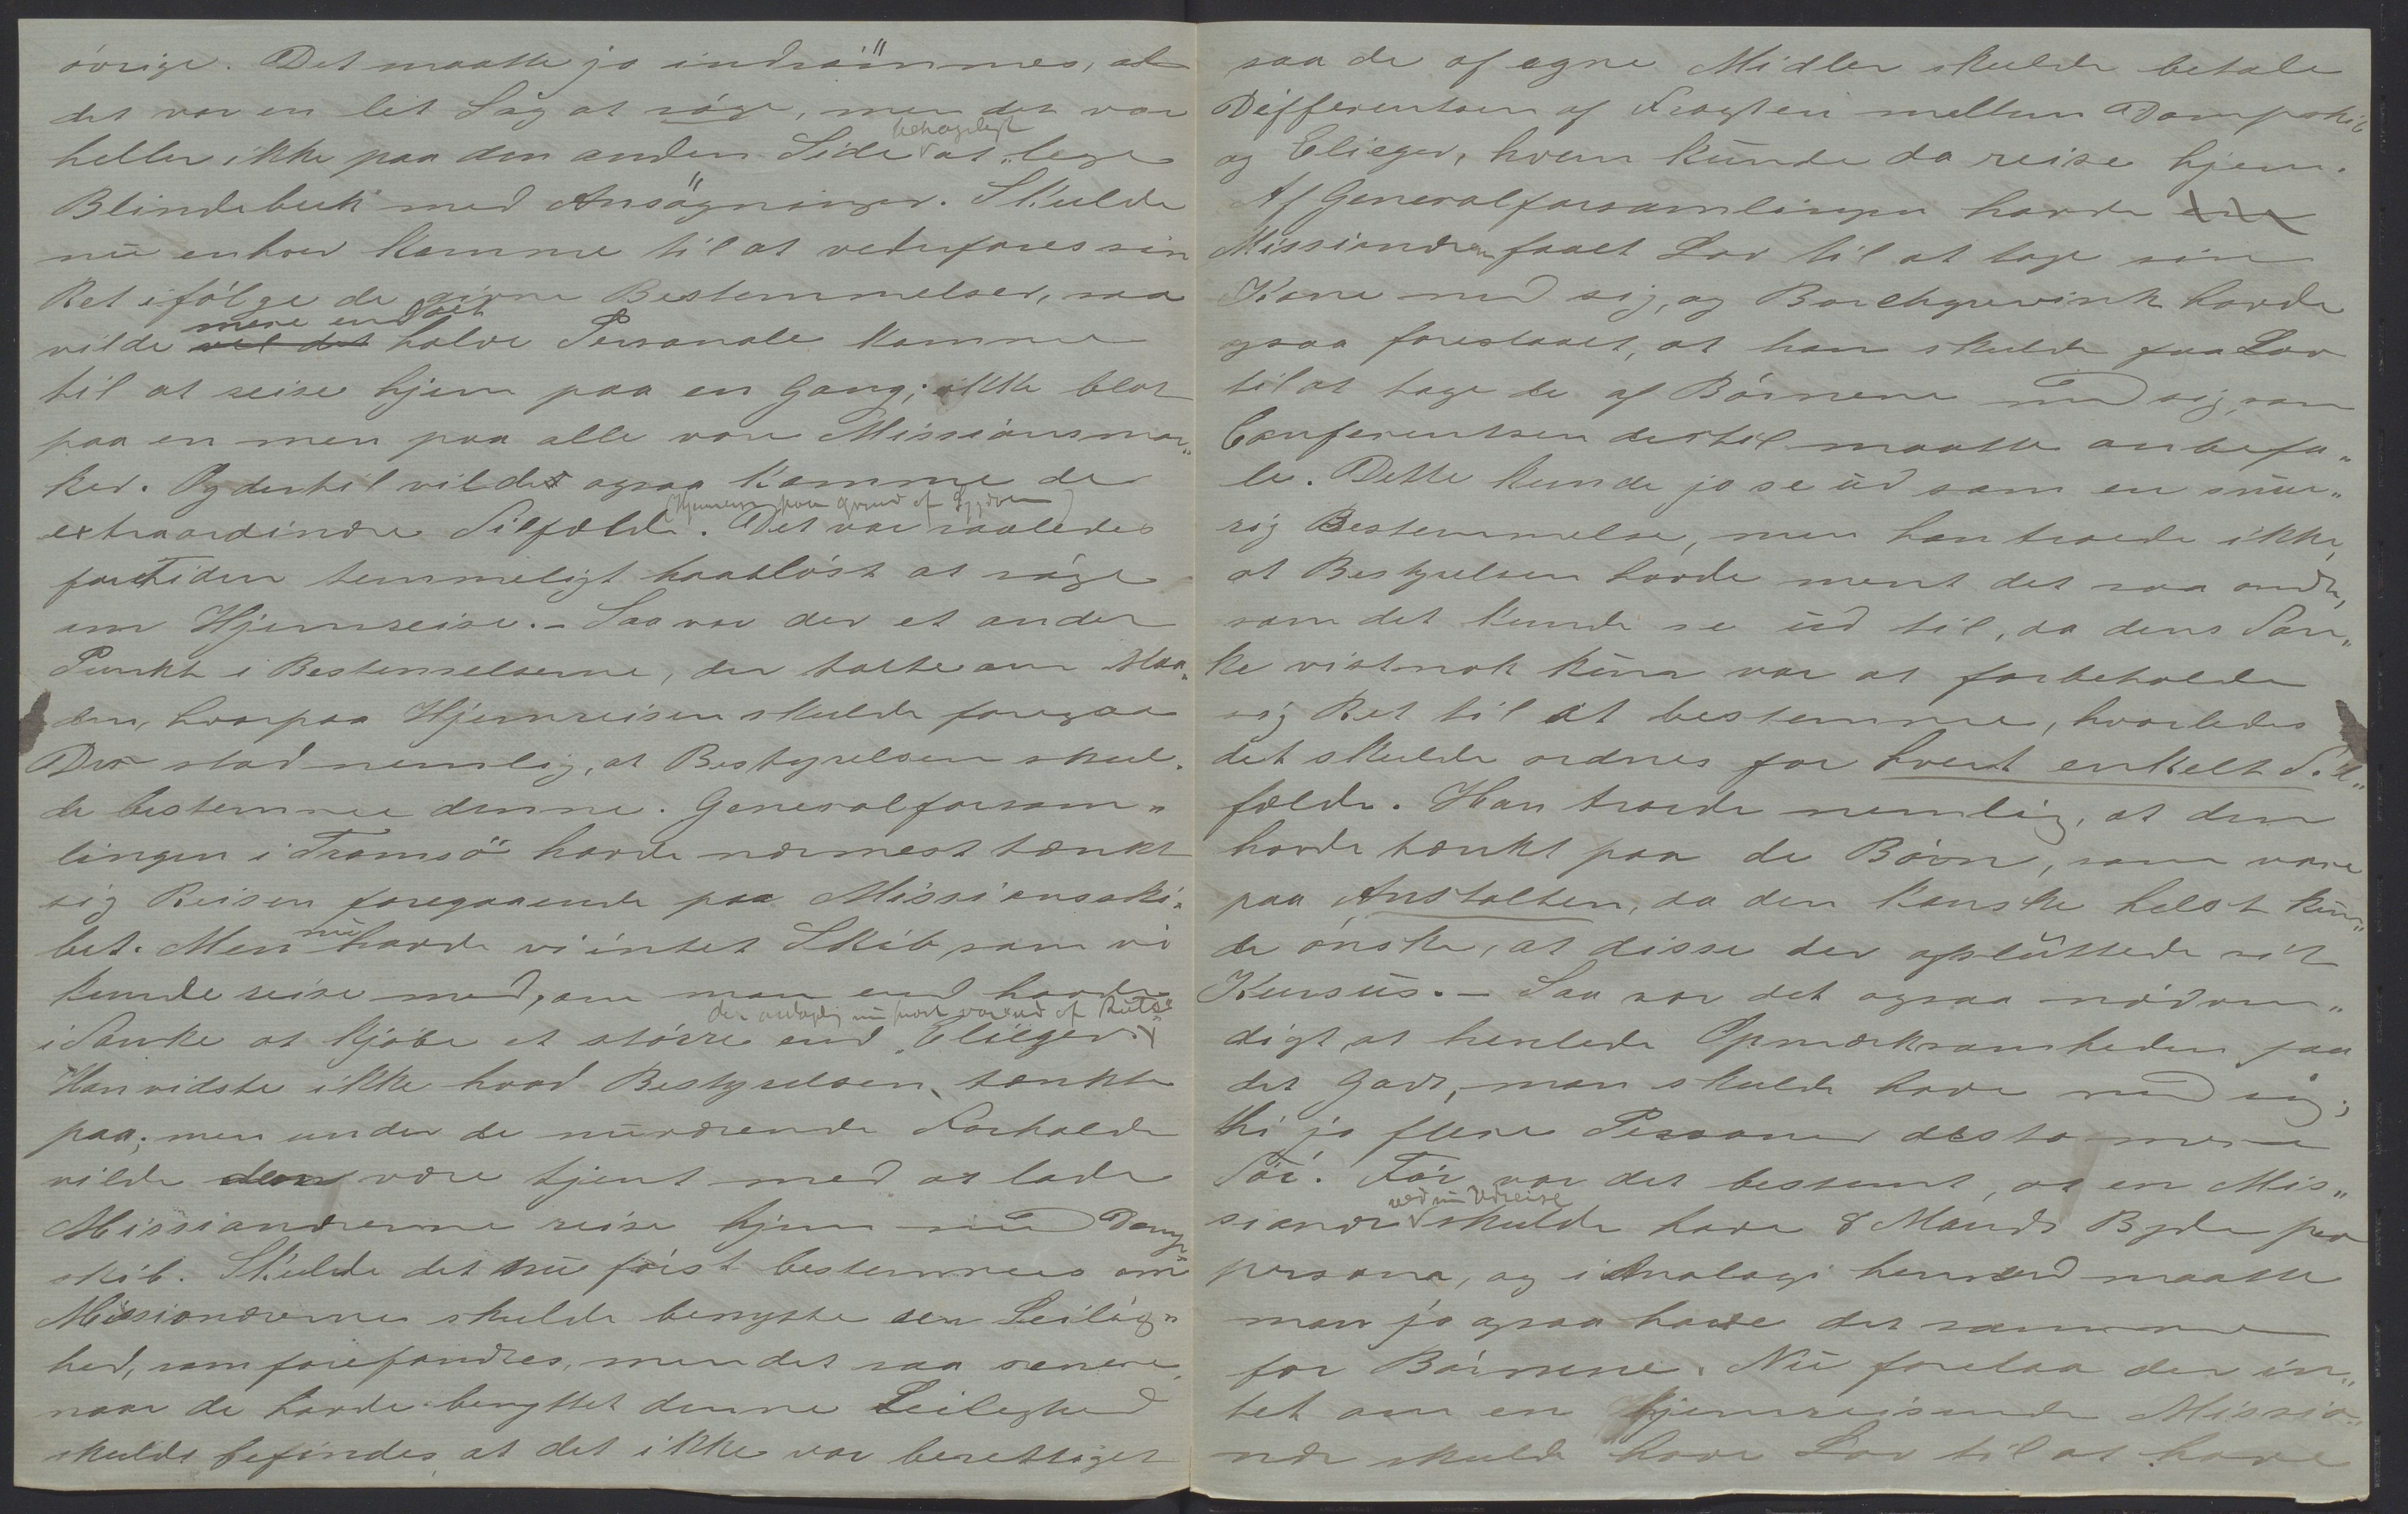 övrige. Det maatte jo indrömmes, at
det var en let Sag at söge, men det var
heller ikke paa den anden Side behageligt at "lege
Blindebuk med Ansögninger. Skulde
nu enhver komme til at vederfares sin
Ret ifölge de givne Bestemmelser, saa
vilde mere end det halve Personale komme
til at reise hjem paa en Gang; ikke blot
paa en men paa alle vore Missionsmar„
ker. Og dertil vilde ogsaa komme de
extraordinære Tilfælde (Hjemreise paa Grund af Sygdom). Det var saaledes
for Tiden temmeligt haablöst at söge
om Hjemreise. – Saa var der et andet
Punkt i Bestemmelserne, der talte om Maa„
den, hvorpaa Hjemreisen skulde foregaa
Der stod nemlig, at Bestyrelsen skul„
de bestemme denne. Generalforsam„
lingen i Tromsö havde nærmest tænkt
sig Reisen foregaaende paa Missionsski„
bet. Men nu havde vi intet Skib, som vi
kunde reise med, om man end havde
i Tanke at kjöbe et större end "Elieser".
Han vidste ikke hvad Bestyrelsen tænkte
paa; men under de nuværende Forholde
vilde den være tjent med at lade
Missionærerne reise hjem med Damp
skib. Skulde det nu först bestemmes om
Missionærerne skulde benytte den Leilig„
hed, som forefandtes, men det saa senere,
naar de havde benyttet denne Leilighed
skulde befindes, at det ikke var berettiget
saa de af egne Midler skulde betale
Differentsen af Fragten mellem Dampskib
og Elieser, hvem kunde da reise hjem.
Af Generalforsamlingen havde
Missionæren faaet Lov til at tage sin
Kone med sig, og Borchgrevink havde
ogsaa foreslaaet, at han skulde faa Lov
til at tage de af Börnene med sig, som
Conferentsen dertil maatte anbefa„
le. Dette kunde jo se ud som en snur„
rig Bestemmelse, men han troede ikke,
at Bestyrelsen havde ment det saa ondt,
som det kunde se ud til, da dens Tan„
ke vistnok kun var at forbeholde
sig Ret til at bestemme, hvorledes
det skulde ordnes for hvert enkelt Til„
fælde. Han troede nemlig, at den
havde tænkt paa de Börn, som vare
paa Anstalten, da den kanske helst kun„
de önske, at disse der afsluttede sit
Kursus. – Saa var det ogsaa nödven„
digt, at henlede Opmærksomheden paa
det Gods, man skulde have med sig;
thi jo flere Personer desto mere
Töi. För var det bestemt, at en Mis„
sionær ved sin Udreise skulde have 8 Maands Byrder per
persona, og i Analogi hermed maatte
man jo ogsaa have det samme
for Börnene. Nu forelaa der in„
tet om en hjemreisende Missio„
nær skulde have Lov til at have